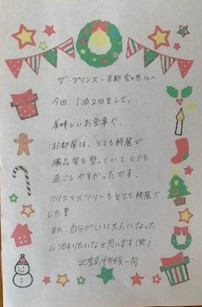 ザ・プリンス 京都宝ヶ池へ
今回、1泊2日をして、
美味しいお食事や、
お部屋は、とても綺麗で
備品等も整っていてとても
過ごしやすかったです。
クリスマスツリーもとても綺麗で
した!!
また、自分がいい大人になった
ら泊まりたいなと思います(笑)
一同